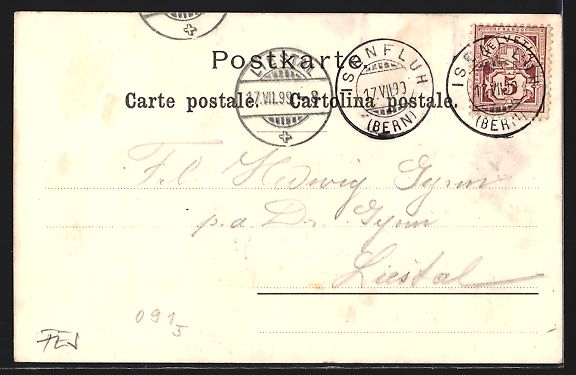 Postkarte.
Carte postale. Cartolina postale.
ISENFLUH
17.VII.99
(BERN)
HELVETIA
5
17.VII.99
(BERN)
Frl. Hedwig Gysin
p.a Dr. Gysin
Liestal
091
5